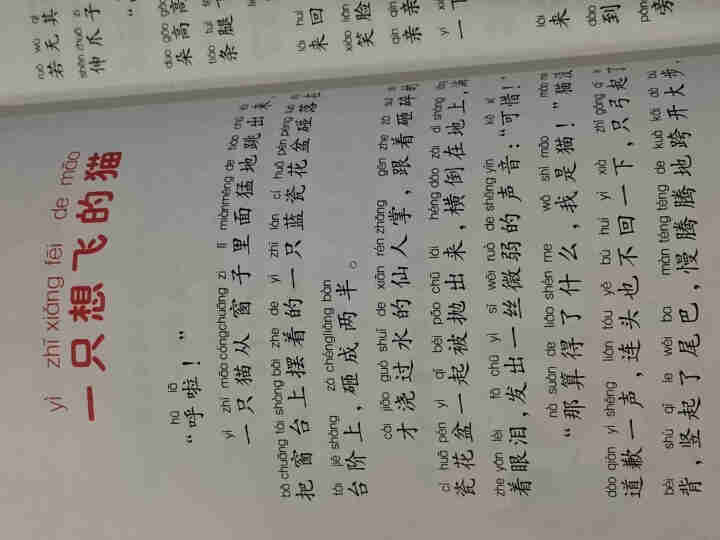 yì zhī xiǎng fēi de māo
一只想飞的猫
hū lā
“呼啦！”
yì zhī māo cóng chuāng zi lǐ miàn měng de tiào chū lái
一只猫从窗子里面猛地跳出来，
bǎ chuāng tái shàng bǎi zhe de yì zhī lán cí huā pén pèng luò
把窗台上摆着的一只蓝瓷花盆碰落
tái jiē shàng zá chéng liǎng bàn
台阶上，砸成两半。
cái jiāo guò shuǐ de xiān rén zhǎng gēn zhe zá suì
才浇过水的仙人掌，跟着砸碎
cí huā pén yì qǐ bèi pāo chū lái héng dǎo zài dì shàng
瓷花盆一起被抛出来，横倒在地上，
zhe yǎn lèi fā chū yì sī wēi ruò de shēng yīn kě xī
着眼泪，发出一丝微弱的声音：“可惜！”
nà suàn de liǎo shén me wǒ shì māo māo
“那算得了什么，我是猫！”猫没
dào qiàn yì shēng lián tóu yě bù huí yí xià zhǐ gōng qǐ
道歉一声，连头也不回一下，只弓起了
bèi shù qǐ le wěi ba màn téng téng de kuà kāi dà bù
背，竖起了尾巴，慢腾腾地跨开大步，
ruò wú qí
若无其
shēn zhuǎ zi
伸爪子
duǒ gāo gāo
朵高高
tiáo tuǐ
条腿
lái huí
来回
xiào liǎn
笑脸
qīn qīn
亲亲
yí xià
一下
lái
来
dào
到
páng
旁